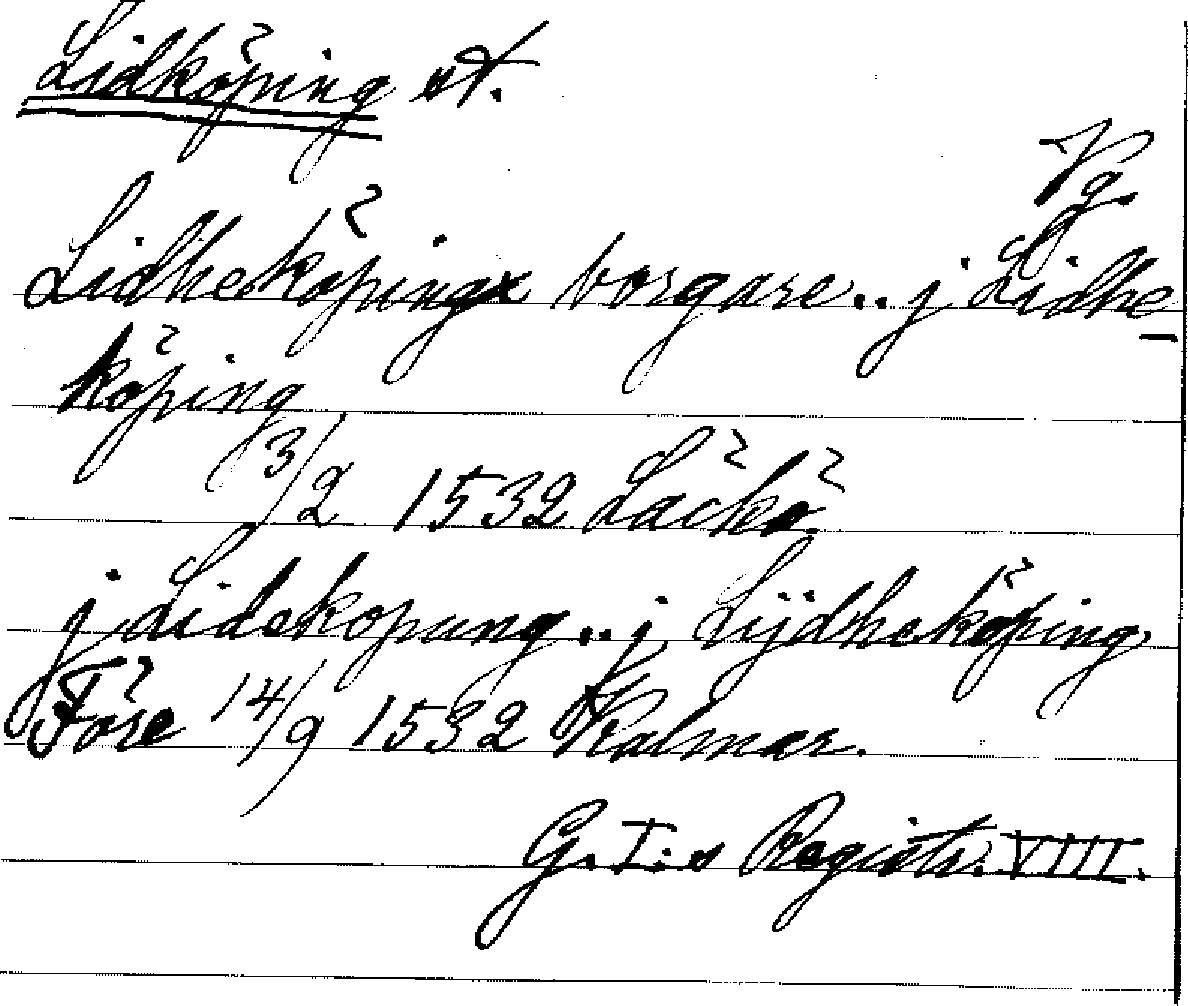 Lidköping st.
Vg.
Lidheköpingx borgare.. j Lidhe-
köping
3/2 1532 Läckö.
j Lidekopung.. j Lijdheköping
Före 14/9 1532 Kalmar.
G. I:s Registr. VIII.